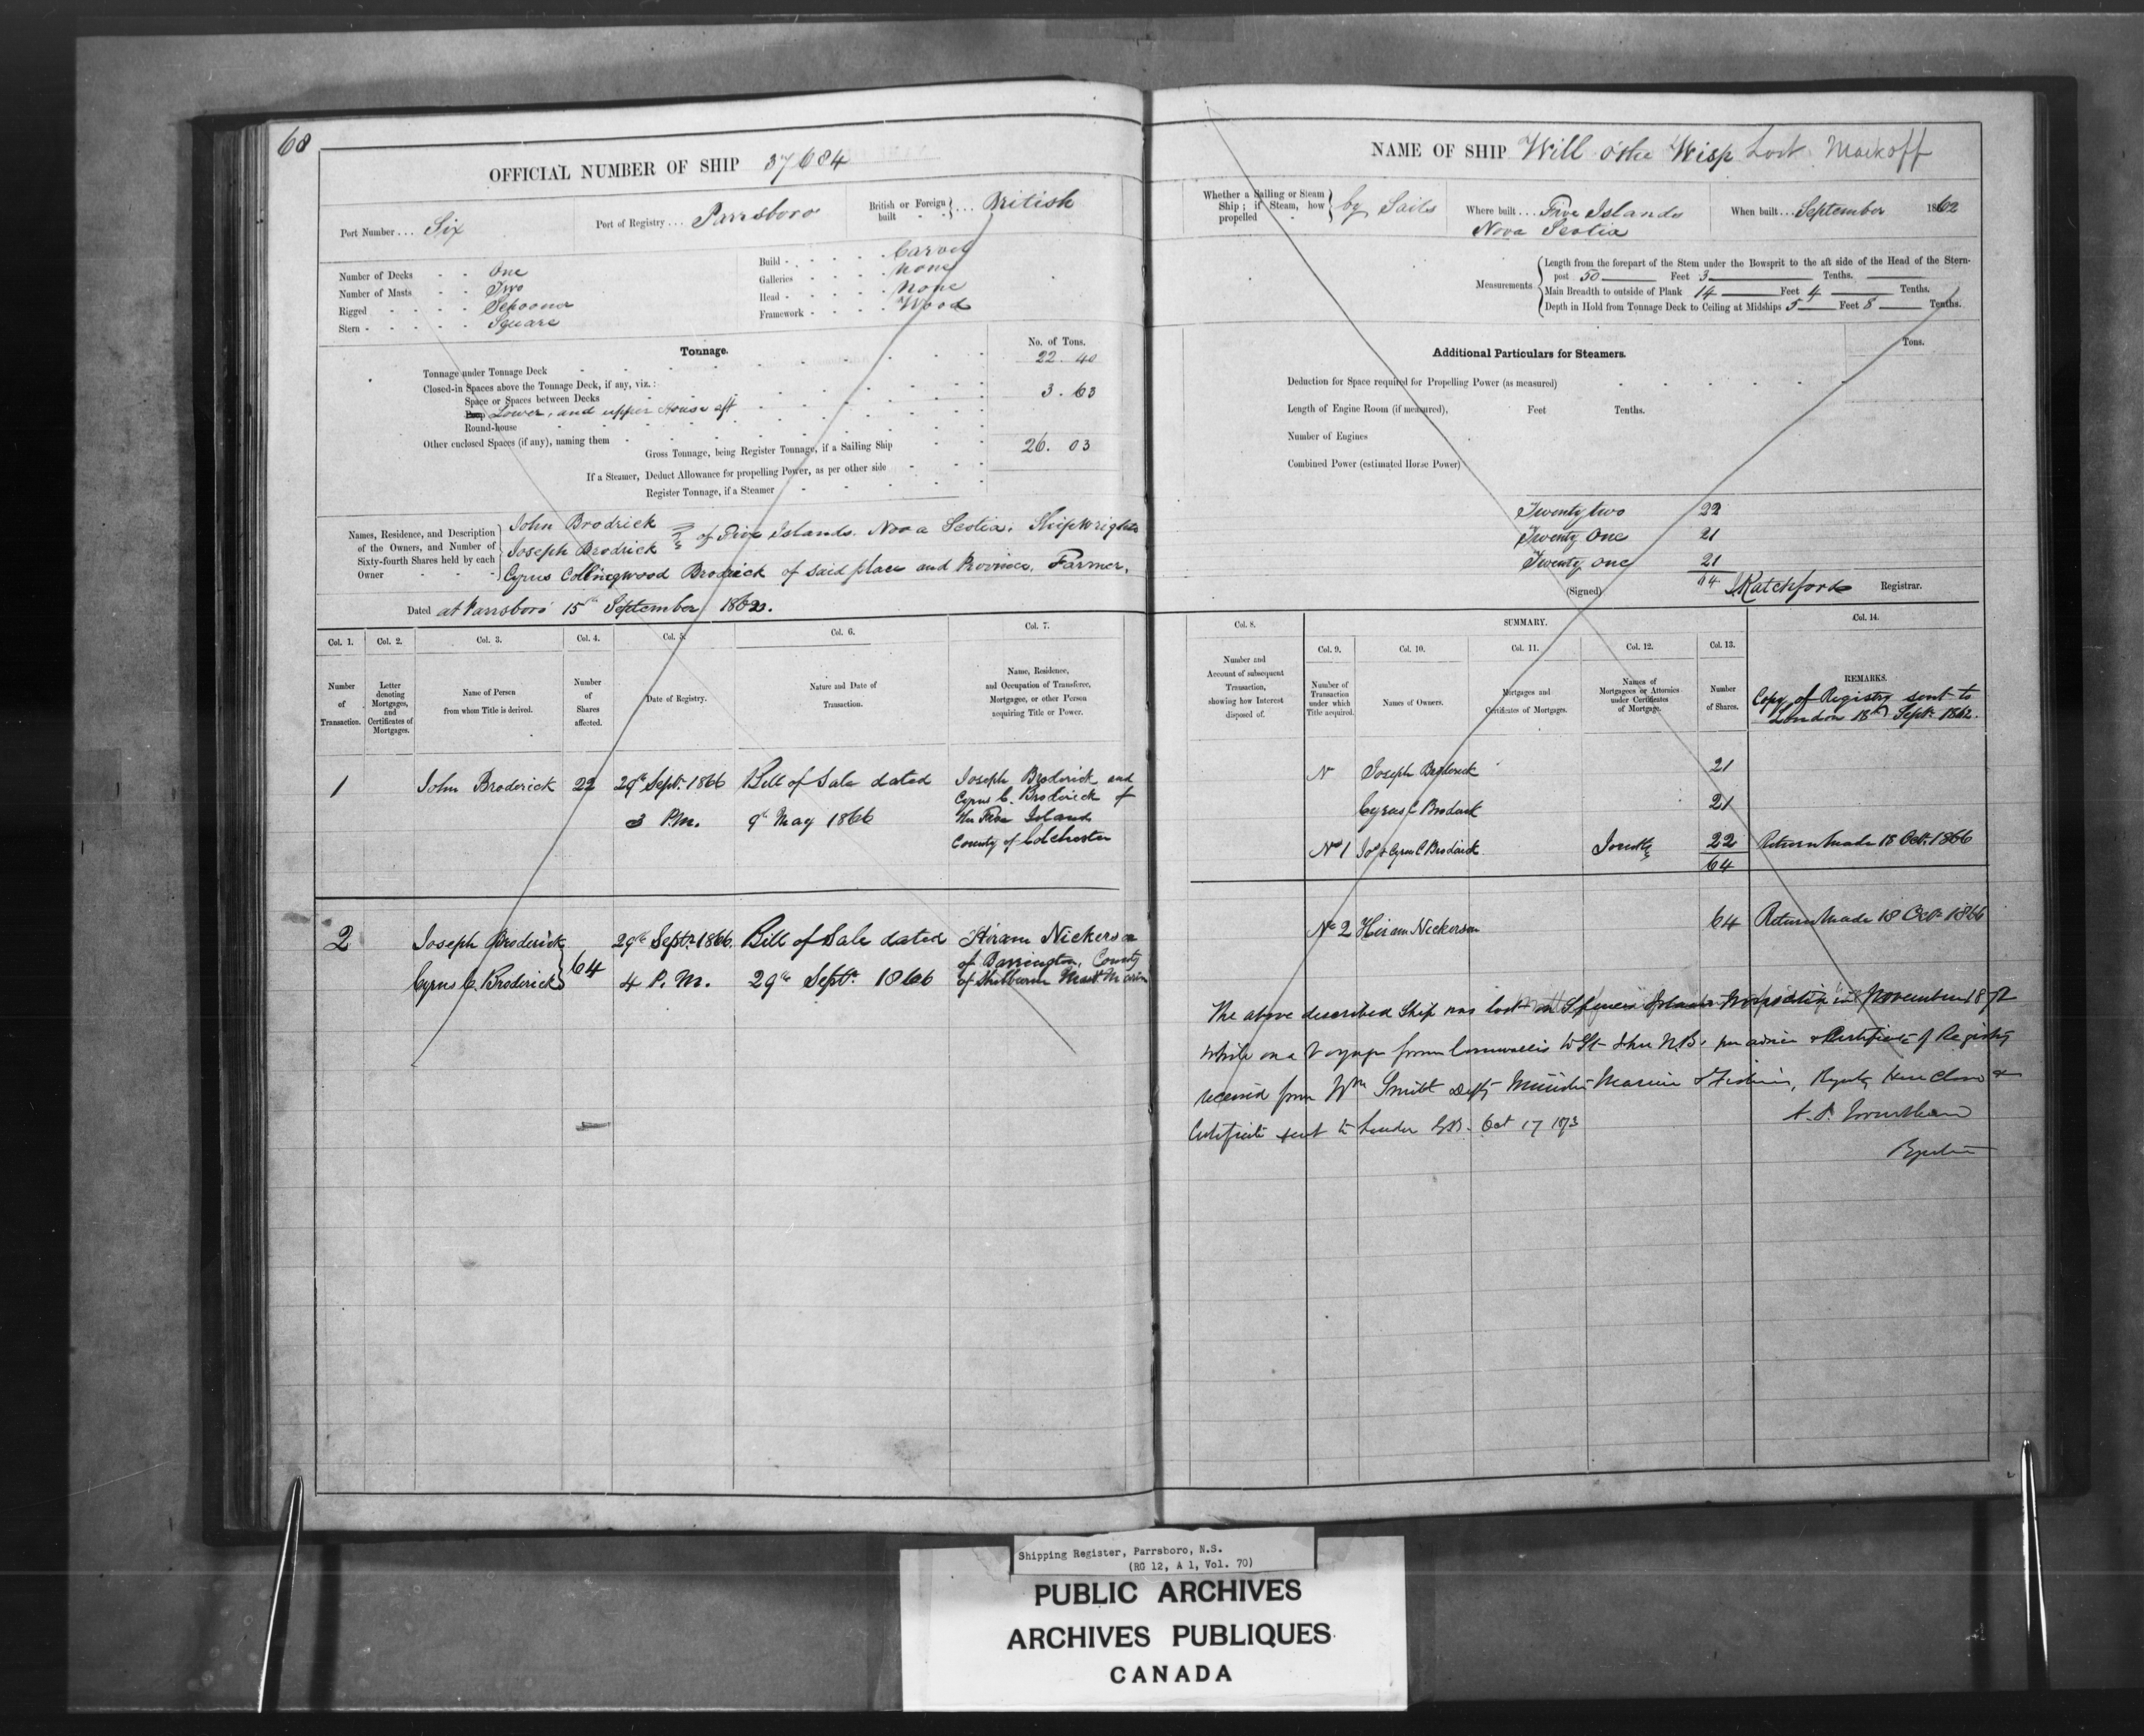 68
OFFICIAL NUMBER OF SHIP 37684
Port Number ... Six
Port of Registry ... Parrsboro
British or Foreign built ... British
Number of Decks - - One
Number of Masts - - Two
Rigged - - - - Schooner
Stern - - - - - Square
Build - - - - - Carvel
Galleries - - - - none
Head - - - - - none
Framework - - - - Wood
Tonnage.
No. of Tons.
Tonnage under Tonnage Deck 22. 40
Closed-in Spaces above the Tonnage Deck, if any, viz.:
Space or Spaces between Decks
Poop Lower, and upper House aft 3. 63
Round-house
Other enclosed Spaces (if any), naming them
Gross Tonnage, being Register Tonnage, if a Sailing Ship 26. 03
If a Steamer, Deduct Allowance for propelling Power, as per other side
Register Tonnage, if a Steamer
Names, Residence, and Description of the Owners, and Number of Sixty-fourth Shares held by each Owner
John Brodrick
Joseph Brodrick of Five Islands. Nova Scotia. Shipwrights
Cyrus Collingwood Brodrick of said place and Province, Farmer.
Dated at Parrsboro 15th September 1862.
Col. 1.
Number of Transaction.
Col. 2.
Letter denoting Mortgages, and Certificates of Mortgages.
Col. 3.
Name of Person from whom Title is derived.
Col. 4.
Number of Shares affected.
Col. 5.
Date of Registry.
Col. 6.
Nature and Date of Transaction.
Col. 7.
Name, Residence, and Occupation of Transferee, Mortgagee, or other Person acquiring Title or Power.
1 John Broderick 22 29th Sept. 1866 Bill of Sale dated Joseph Broderick and
Cyrus C. Broderick of
3 P.M. 9th May 1866 the Five Islands
County of Colchester
2 Joseph Broderick 29th Sept. 1866 Bill of Sale dated Hiram Nickerson
64 of Barrington, County
Cyrus C. Broderick 4 P.M. 29th Sept. 1866 of Shelburne Mast Marin
NAME OF SHIP Will o'the Wisp Lost Mark off
Whether a Sailing or Steam Ship; if Steam, how propelled - by Sails
Where built ... Five Islands
Nova Scotia
When built ... September 1862
Measurements
Length from the forepart of the Stem under the Bowsprit to the aft side of the Head of the Stern-
post 50 Feet 3 Tenths.
Main Breadth to outside of Plank 14 Feet 4 Tenths.
Depth in Hold from Tonnage Deck to Ceiling at Midships 5 Feet 8 Tenths.
Additional Particulars for Steamers.
Tons.
Deduction for Space required for Propelling Power (as measured)
Length of Engine Room (if measured), Feet Tenths.
Number of Engines
Combined Power (estimated Horse Power)
Twenty two 22
Twenty One 21
Twenty one 21
64
(Signed) Ratchford Registrar.
Col. 8.
Number and Account of subsequent Transaction, showing how Interest disposed of.
SUMMARY.
Col. 9.
Number of Transaction under which Title acquired.
Col. 10.
Names of Owners.
Col. 11.
Mortgages and Certificates of Mortgages.
Col. 12.
Names of Mortgagees or Attornies under Certificates of Mortgage.
Col. 13.
Number of Shares.
Col. 14.
REMARKS.
Copy of Registry sent to
London 18th Sept. 1862.
N Joseph Broderick 21
Cyrus C Broderick 21
No 1 Jos & Cyrus C Broderick Jointly 22 Return made 18 Oct. 1866
64
No 2 Hiram Nickerson 64 Return made 18 Oct. 1866
The above described Ship was lost Spencers Island Nova Scotia in November 1872
while on a Voyage from Cornwallis to St John N.B. per advice & Certificate of Registry
received from Wm Smith Depty Minister Marine & Fisheries, Registry here closed &
Certificate sent to London G.B. Oct 17 1873
Registrar
Shipping Register, Parrsboro, N.S.
(RG 12, A 1, Vol. 70)
PUBLIC ARCHIVES
ARCHIVES PUBLIQUES
CANADA